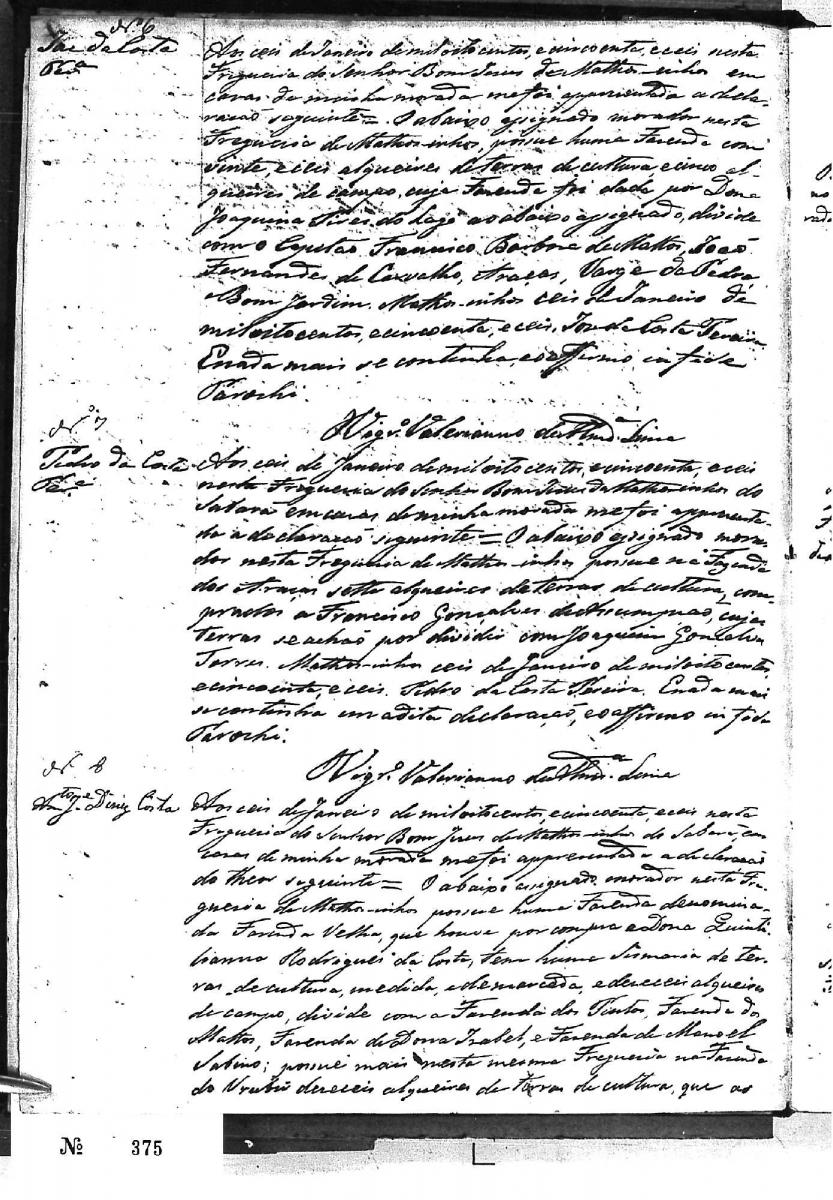 Nº 6
Joze da Costa
Per.ª
Aos ceis de Janeiro de mil oito centos, e cincoenta, e ceis nesta
Freguezia do Senhor Bom Jesus de Mathosinhos em
cazas de minha morada me foi apprezentada a decla-
ração seguinte = O abaixo assignado morador nesta
Freguezia de Mathosinhos, possue huma Fazenda com
vinte, e ceis alqueires de terras de cultura, e cinco al-
queires de campo, cuja Fazenda foi dada por Dona
Joaquina Pires do Lago ao abaixo assignado, divide
com o Capitão Francisco Barboza de Mattos, João
Fernandes de Carvalho, Araças, Varge da Pedra
e Bom Jardim. Mathosinhos ceis de Janeiro de
mil oito centos, e cincoenta, e ceis. Joze da Costa Pereira
E nada mais se continha, e o affirmo in fide
Parochi.
Vigr.º Valerianno
Nº 7
Pedro da Costa
Per.ª
Aos ceis de Janeiro de mil oito centos, e cincoenta, e ceis
nesta Freguezia do Senhor Bom Jesus de Mathosinhos do
Sabará em cazas de minha morada me foi apprezenta-
da a declaração seguinte = O abaixo assignado mora-
dor nesta Freguezia de Mathosinhos possue na Fazenda
dos Araças sette alqueires de terras de cultura, com-
prados a Francisco Gonçalves de Assumpção, cujas
terras se achão por dividir com Joaquim Gonçalves
Torres. Mathosinhos ceis de Janeiro de mil oito centos,
e cincoenta, e ceis. Pedro da Costa Pereira. E nada mais
se continha em a dita declaração, e o affirmo in fide
Parochi.
Vigr.º Valerianno
Nº 8
Anto J.e Diniz Costa
Aos ceis de Janeiro de mil oito centos, e cincoenta, e ceis nesta
Freguezia do Senhor Bom Jesus de Mathosinhos do Sabará, em
cazas de minha morada me foi apprezentada a declaração
do theor seguinte = O abaixo assignado morador nesta Fre-
guezia de Mathosinhos possue huma Fazenda denomina-
da Fazenda Velha, que houve por compra a Dona Quinti-
lianna Rodrigues da Costa, tem huma Sismaria de ter-
ras de cultura, medida, e demarcada, e dezeceis alqueires
de campo, divide com a Fazenda dos Pintos, Fazenda dos
Mattos, Fazenda de Dona Izabel, e Fazenda de Manoel
Sabino; possue mais nesta mesma Freguezia na Fazenda
do Urubú dezeceis alqueires de terras de cultura, que as
Nº 375